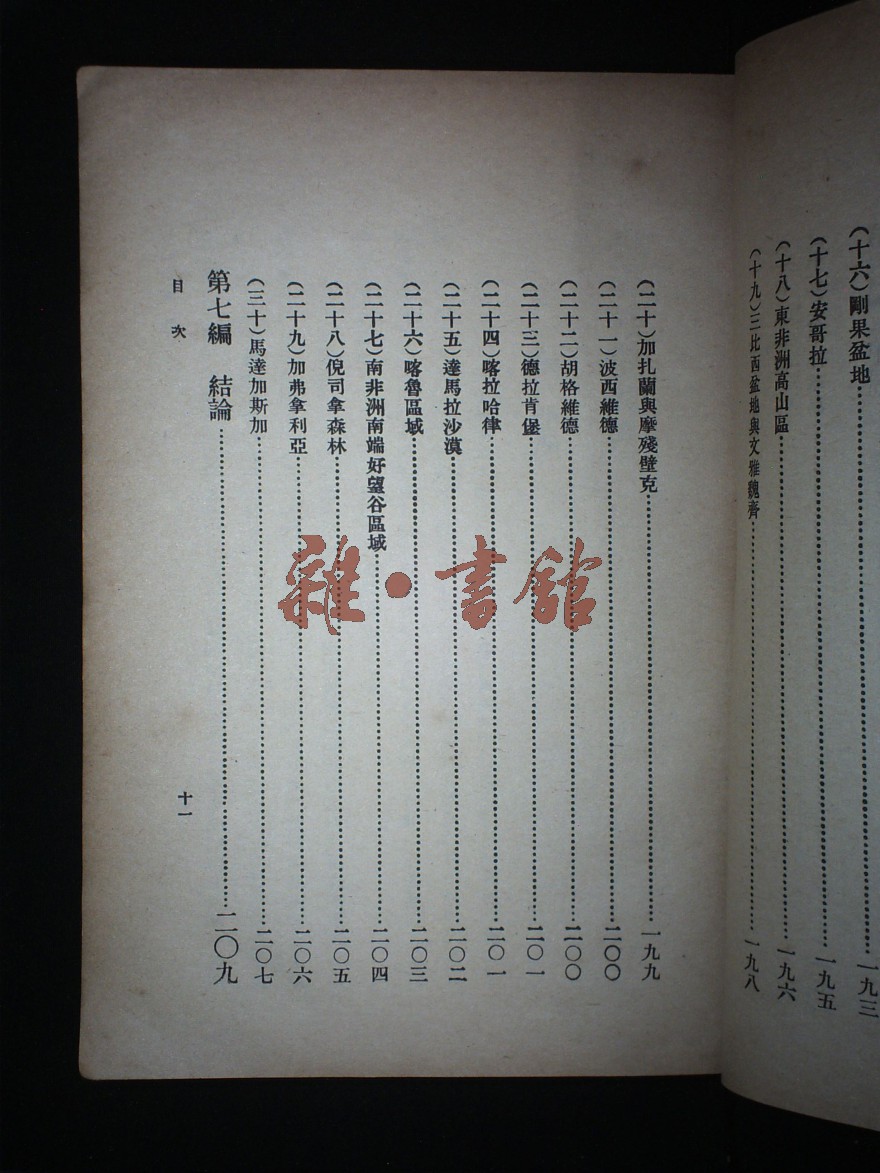 (十六)剛果盆地……一九三
(十七)安哥拉……一九五
(十八)東非洲高山區……一九六
(十九)三比西盆地與文雅魏齊……一九八
(二十)加扎蘭與摩殘壁克……一九九
(二十一)波西維德……二〇〇
(二十二)胡格維德……二〇〇
(二十三)德拉肯堡……二〇一
(二十四)喀拉哈律……二〇一
(二十五)達馬拉沙漠……二〇二
(二十六)喀魯區域……二〇三
(二十七)南非洲南端好望谷區域……二〇四
(二十八)倪司拿森林……二〇五
(二十九)加弗拿利亞……二〇六
(三十)馬達加斯加……二〇七
第七編 結論……二〇九
目次
十一
雜·書館